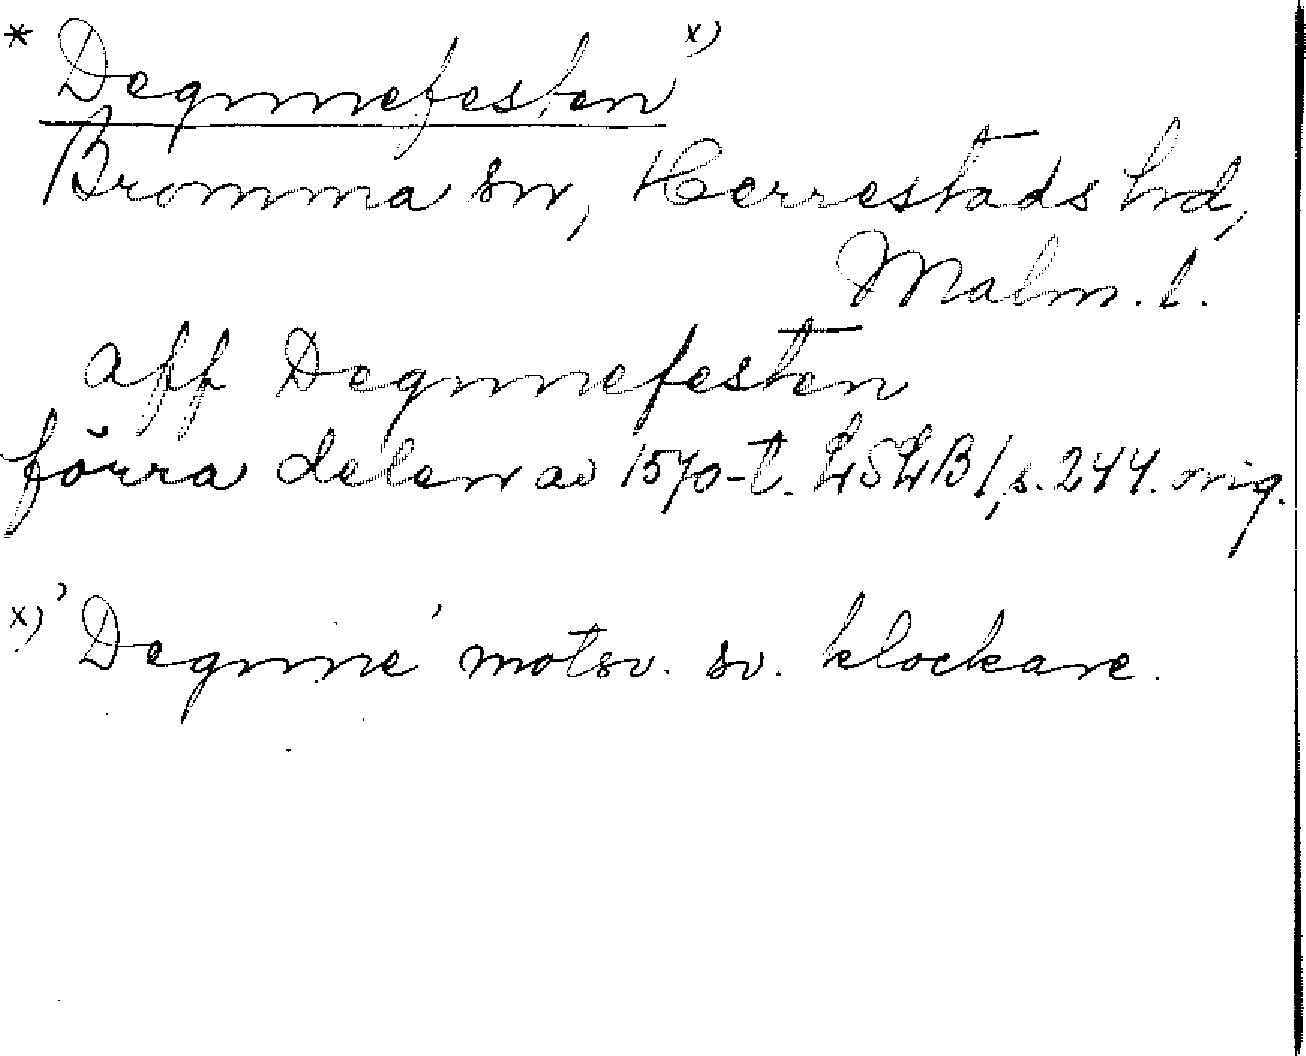 * Degnnefesten x)
Bromma sn, Herrestads hd,
Malm. l.
aff Degnnefesten
förra delen av 1570-t. LSLB I, s. 244. orig.
x) 'Degnne' motsv. sv. klockare.